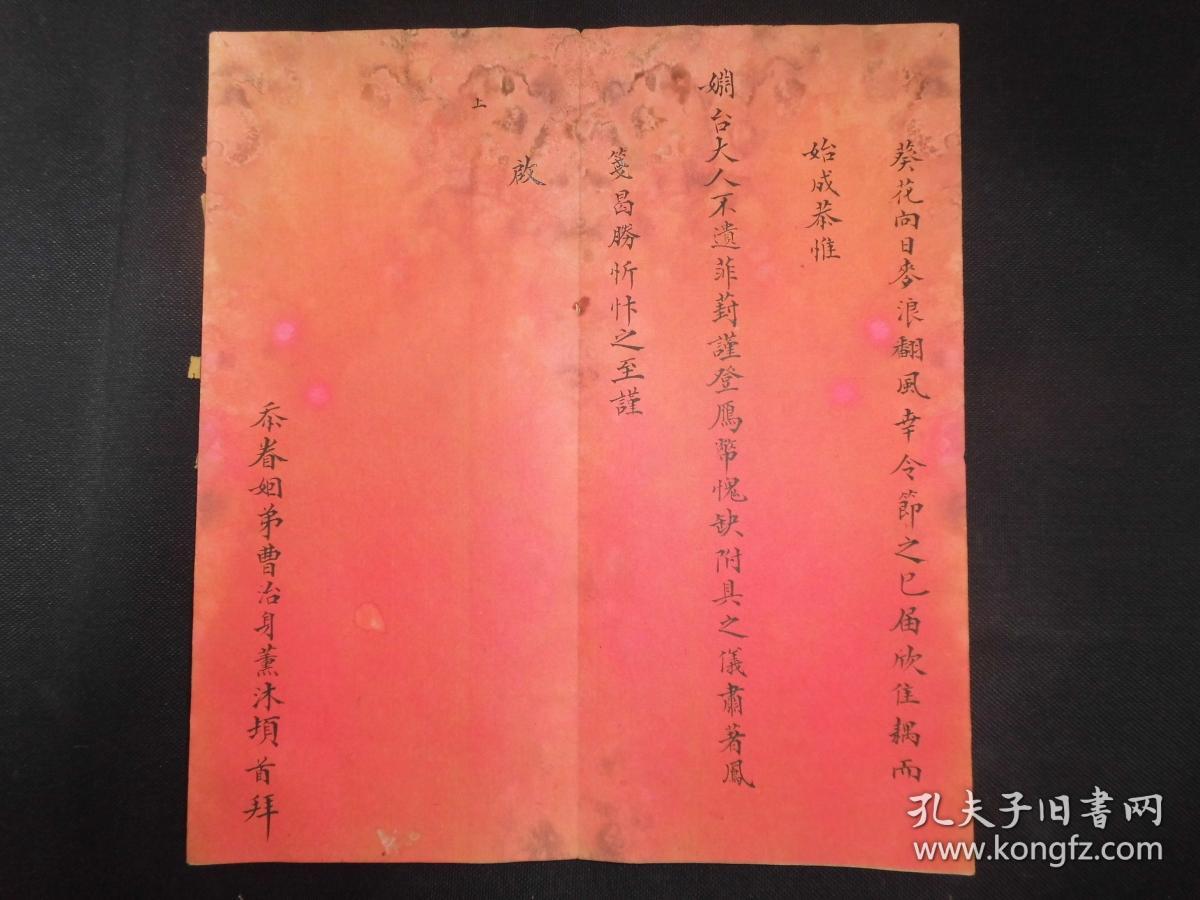 葵花向日麥浪翻風幸令節之已届欣佳耦而
始成恭惟
嫻台大人不遺菲葑謹登鴈幣愧缺附具之儀肅著鳳
箋曷勝忻忭之至謹
啟
上
忝眷姻弟曹治身薰沐頓首拜
孔夫子旧書网
www.kongfz.com